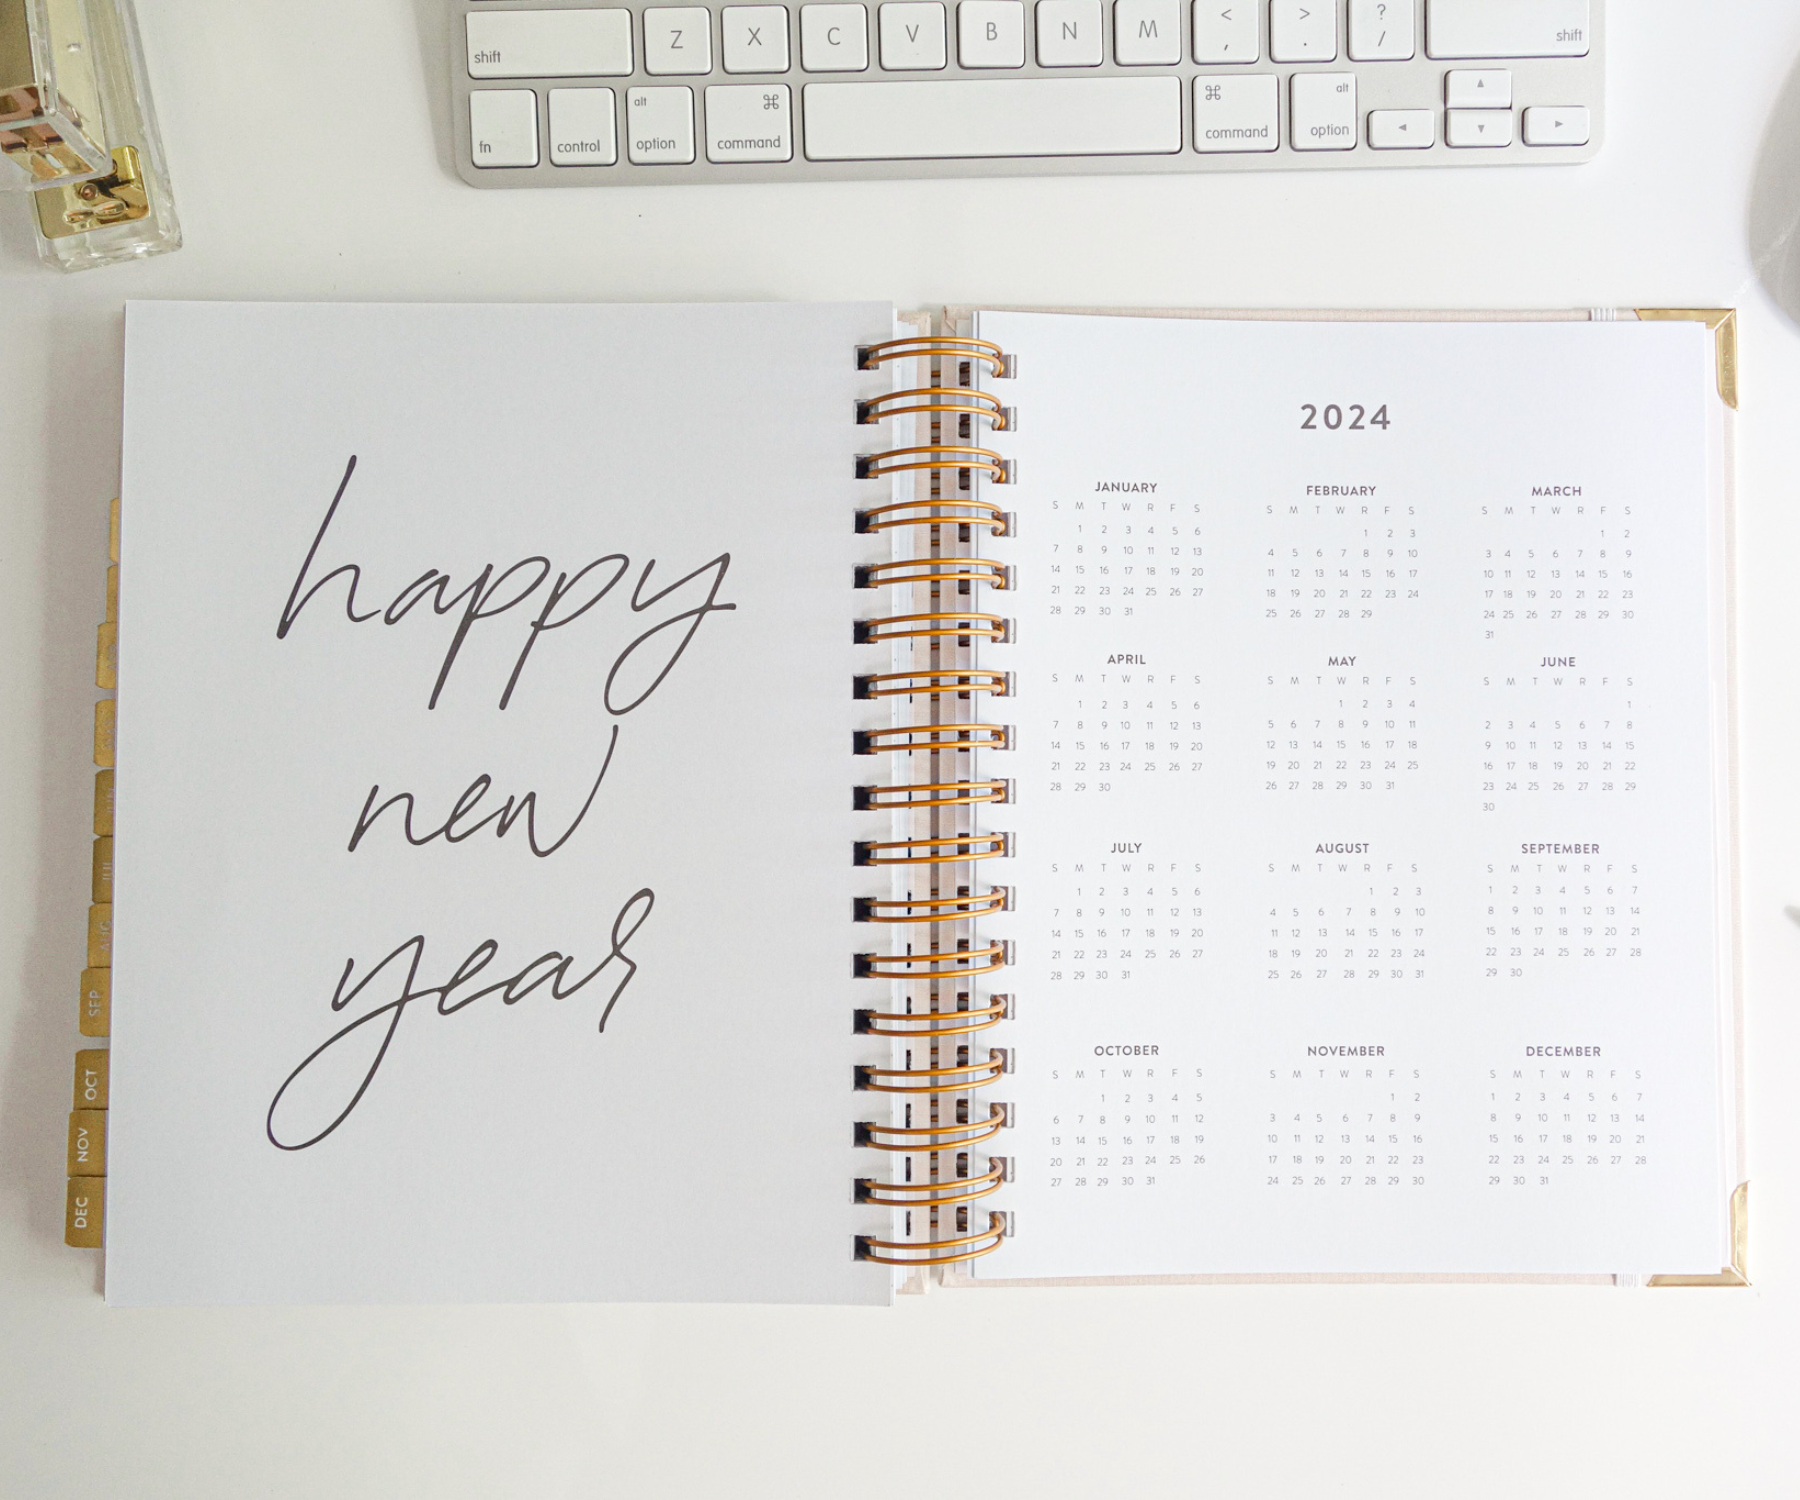 shift Z X C V B N M < , > . ? / shift
fn control alt option ⌘ command ⌘ command alt option ◄ ▲ ▼ ►
happy
new
year
SEP
OCT
NOV
DEC
2024
JANUARY
S M T W R F S
1 2 3 4 5 6
7 8 9 10 11 12 13
14 15 16 17 18 19 20
21 22 23 24 25 26 27
28 29 30 31
FEBRUARY
S M T W R F S
1 2 3
4 5 6 7 8 9 10
11 12 13 14 15 16 17
18 19 20 21 22 23 24
25 26 27 28 29
MARCH
S M T W R F S
1 2
3 4 5 6 7 8 9
10 11 12 13 14 15 16
17 18 19 20 21 22 23
24 25 26 27 28 29 30
31
APRIL
S M T W R F S
1 2 3 4 5 6
7 8 9 10 11 12 13
14 15 16 17 18 19 20
21 22 23 24 25 26 27
28 29 30
MAY
S M T W R F S
1 2 3 4
5 6 7 8 9 10 11
12 13 14 15 16 17 18
19 20 21 22 23 24 25
26 27 28 29 30 31
JUNE
S M T W R F S
1
2 3 4 5 6 7 8
9 10 11 12 13 14 15
16 17 18 19 20 21 22
23 24 25 26 27 28 29
30
JULY
S M T W R F S
1 2 3 4 5 6
7 8 9 10 11 12 13
14 15 16 17 18 19 20
21 22 23 24 25 26 27
28 29 30 31
AUGUST
S M T W R F S
1 2 3
4 5 6 7 8 9 10
11 12 13 14 15 16 17
18 19 20 21 22 23 24
25 26 27 28 29 30 31
SEPTEMBER
S M T W R F S
1 2 3 4 5 6 7
8 9 10 11 12 13 14
15 16 17 18 19 20 21
22 23 24 25 26 27 28
29 30
OCTOBER
S M T W R F S
1 2 3 4 5
6 7 8 9 10 11 12
13 14 15 16 17 18 19
20 21 22 23 24 25 26
27 28 29 30 31
NOVEMBER
S M T W R F S
1 2
3 4 5 6 7 8 9
10 11 12 13 14 15 16
17 18 19 20 21 22 23
24 25 26 27 28 29 30
DECEMBER
S M T W R F S
1 2 3 4 5 6 7
8 9 10 11 12 13 14
15 16 17 18 19 20 21
22 23 24 25 26 27 28
29 30 31